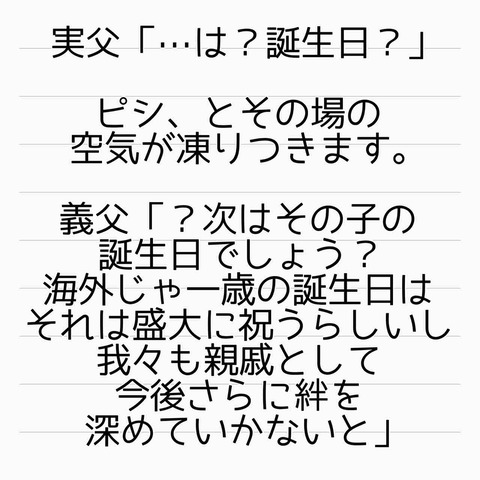 実父「…は？誕生日？」
ピシ、とその場の
空気が凍りつきます。
義父「？次はその子の
誕生日でしょう？
海外じゃ一歳の誕生日は
それは盛大に祝うらしいし
我々も親戚として
今後さらに絆を
深めていかないと」